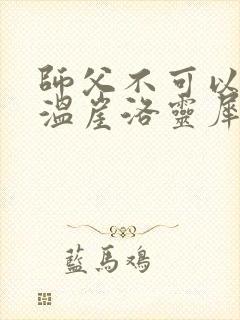 師父不可以
溫崖洛靈犀
藍馬鴻